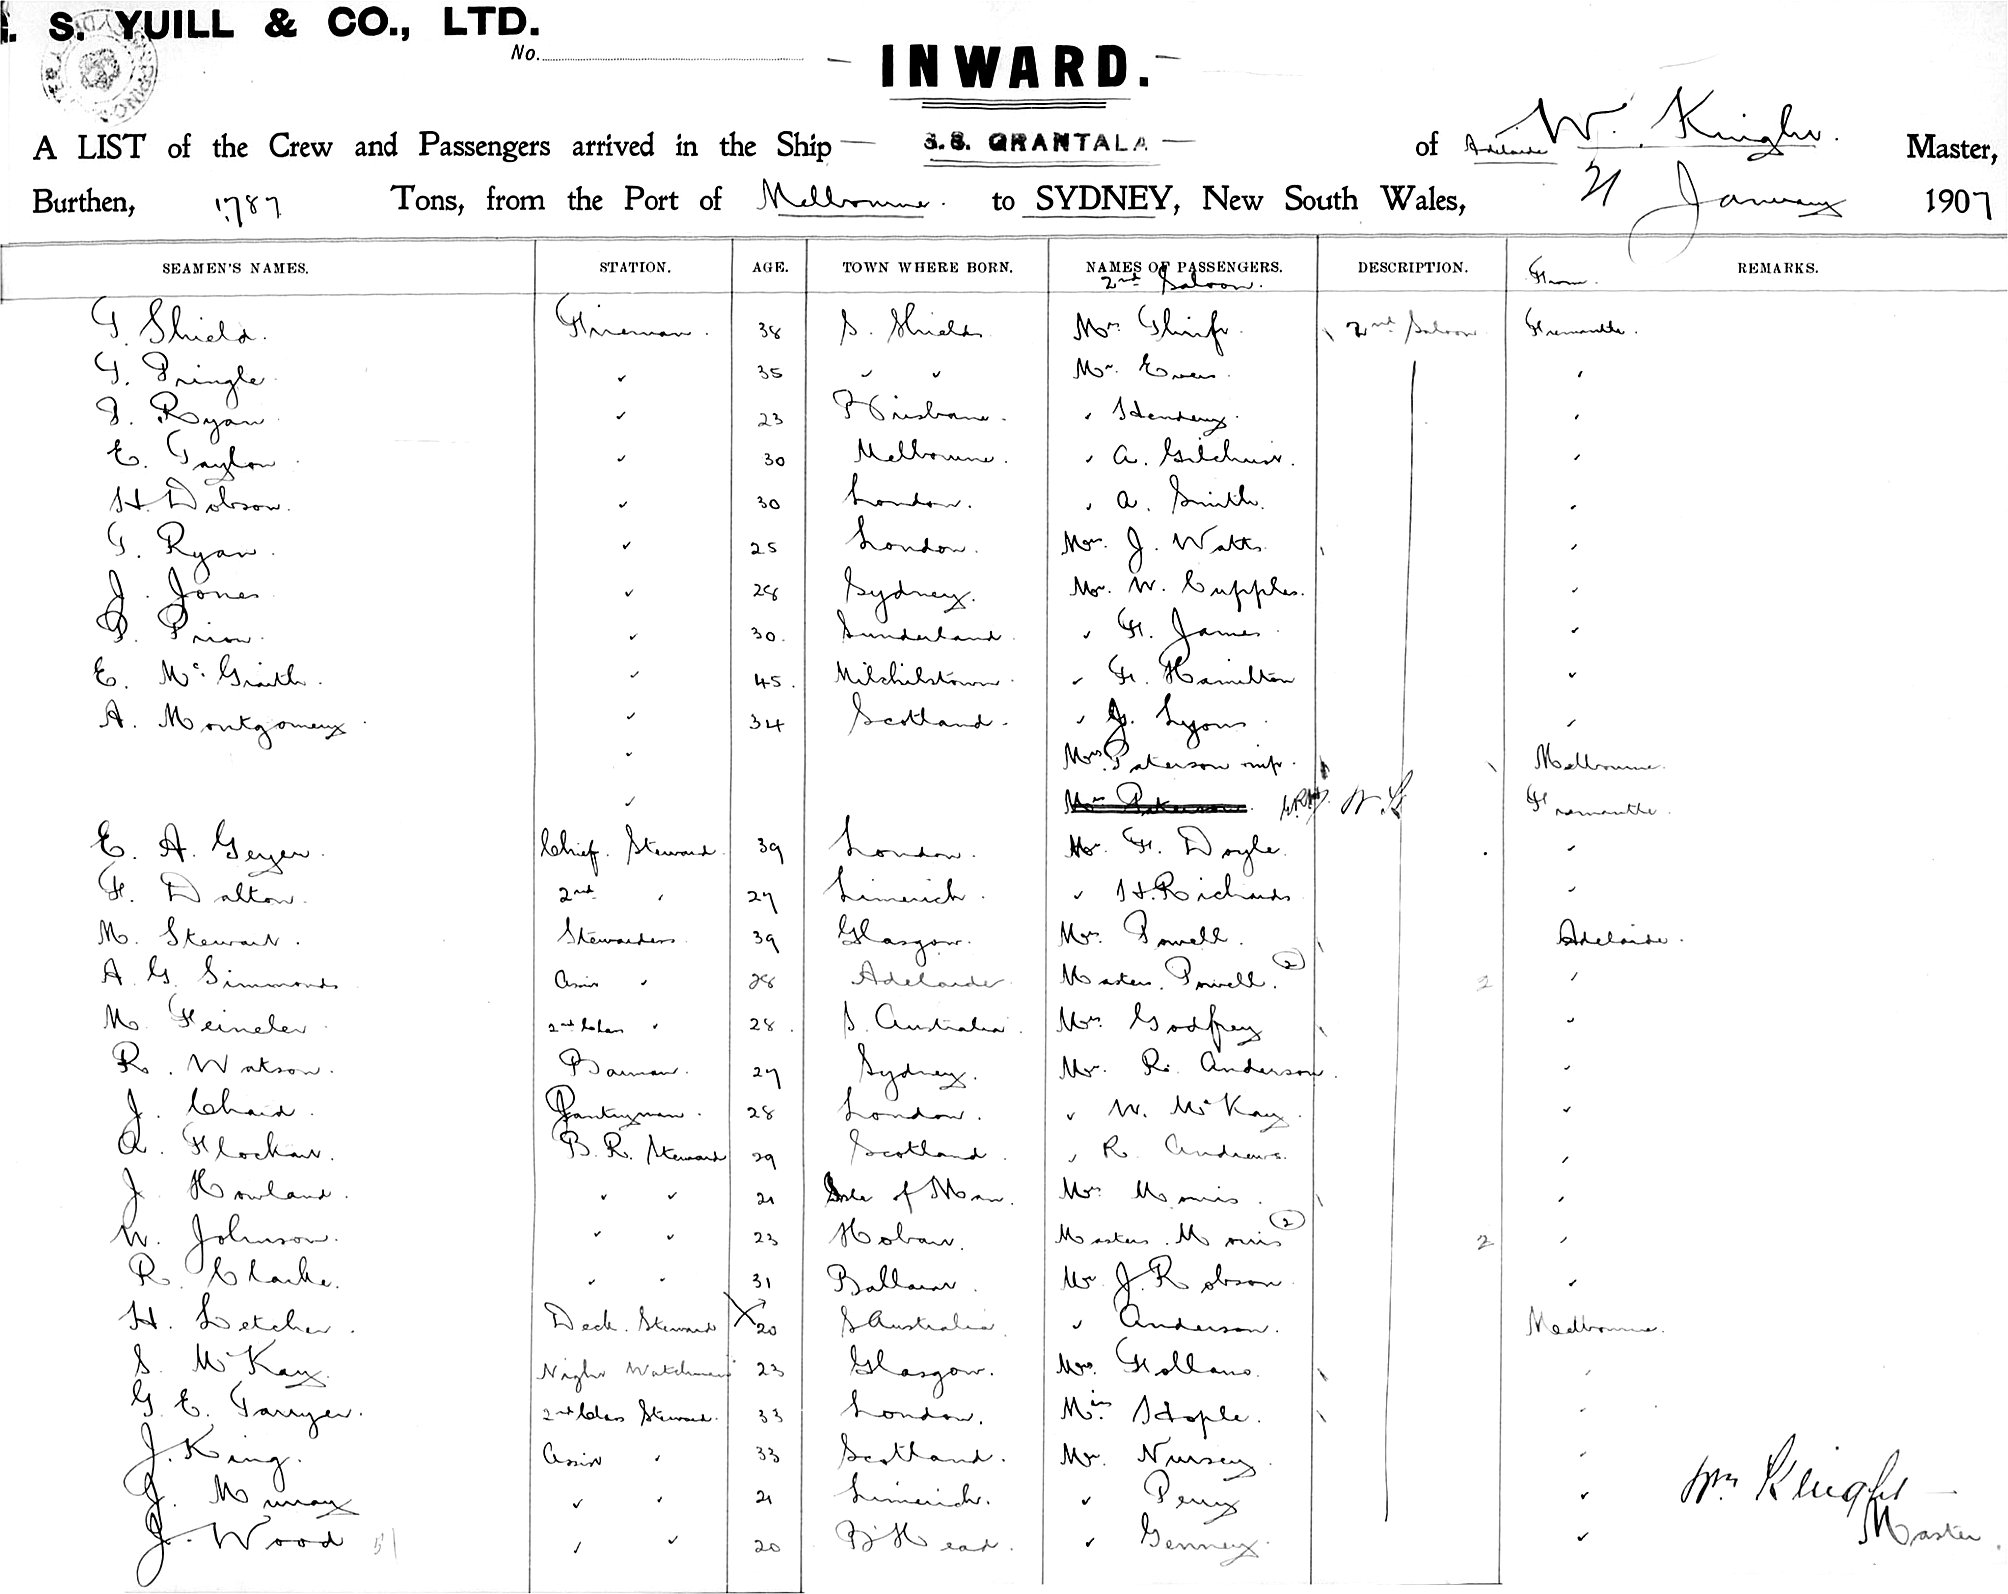 . S. YUILL & CO., LTD.
No.
INWARD.
A LIST of the Crew and Passengers arrived in the Ship S.S. GRANTALA of Adelaide W. Knight. Master,
Burthen, 1787 Tons, from the Port of Melbourne. to SYDNEY, New South Wales, 21 January 1907
SEAMEN'S NAMES. STATION. AGE. TOWN WHERE BORN. NAMES OF PASSENGERS. DESCRIPTION. REMARKS.
2nd Saloon. From.
T. Shield. Fireman. 38 S. Shields 2nd Saloon Fremantle.
T. Pringle 35 Mr.
Ryan 23 Brisbane.
E. Taylor 30 Melbourne. A. Gilchrist.
H. Dobson. 30 London. A. Smith.
T. Ryan. 25 London. J. Watts.
J. Jones 28 Sydney. Mr. W. Cupples.
Prior. 30. Sunderland. F. James
E. McGrath. 45. Mitchilstown. F. Hamilton
A. Montgomery. 34 Scotland. Lyons.
Mrs. Paterson Melbourne.
Fremantle.
E. A. Geyer. Chief. Steward. 39 London. Mr. F. Doyle.
F. Dalton. 2nd 27 Limerick. H. Richards
M. Stewart. Stewardess. 39 Glasgow. Mrs. Powell. Adelaide.
A. G. Simmonds Assist 28 Adelaide Masters. Powell. 2 2
M. 2nd Class 28. S. Australia. Mrs. Godfrey
R. Watson. Barman. 27 Sydney. Mr. R. Anderson.
J. Chard. Pantryman. 28 London. W. McKay.
A. Flockart. B. R. Steward 29 Scotland. R. Andrews.
J. Howland. 21 Isle of Man. Mrs Morris.
W. Johnson. 23 Hobart. Masters. Morris 2 2
R. Clarke. 31 Ballarat. Mr. J. Robson.
H. Letcher. Deck. Steward 20 S Australia. Anderson. Melbourne.
S. McKay. Night Watchman 23 Glasgow. Mrs.
G. E. Tarryer. 2nd Class Steward. 33 London. Miss Hople.
J. King. Assist 33 Scotland. Mr. Nursey
J. Murray 21 Limerick. Perry
J. Wood 20 B'Head. Genney.
Wm Knight
Master.